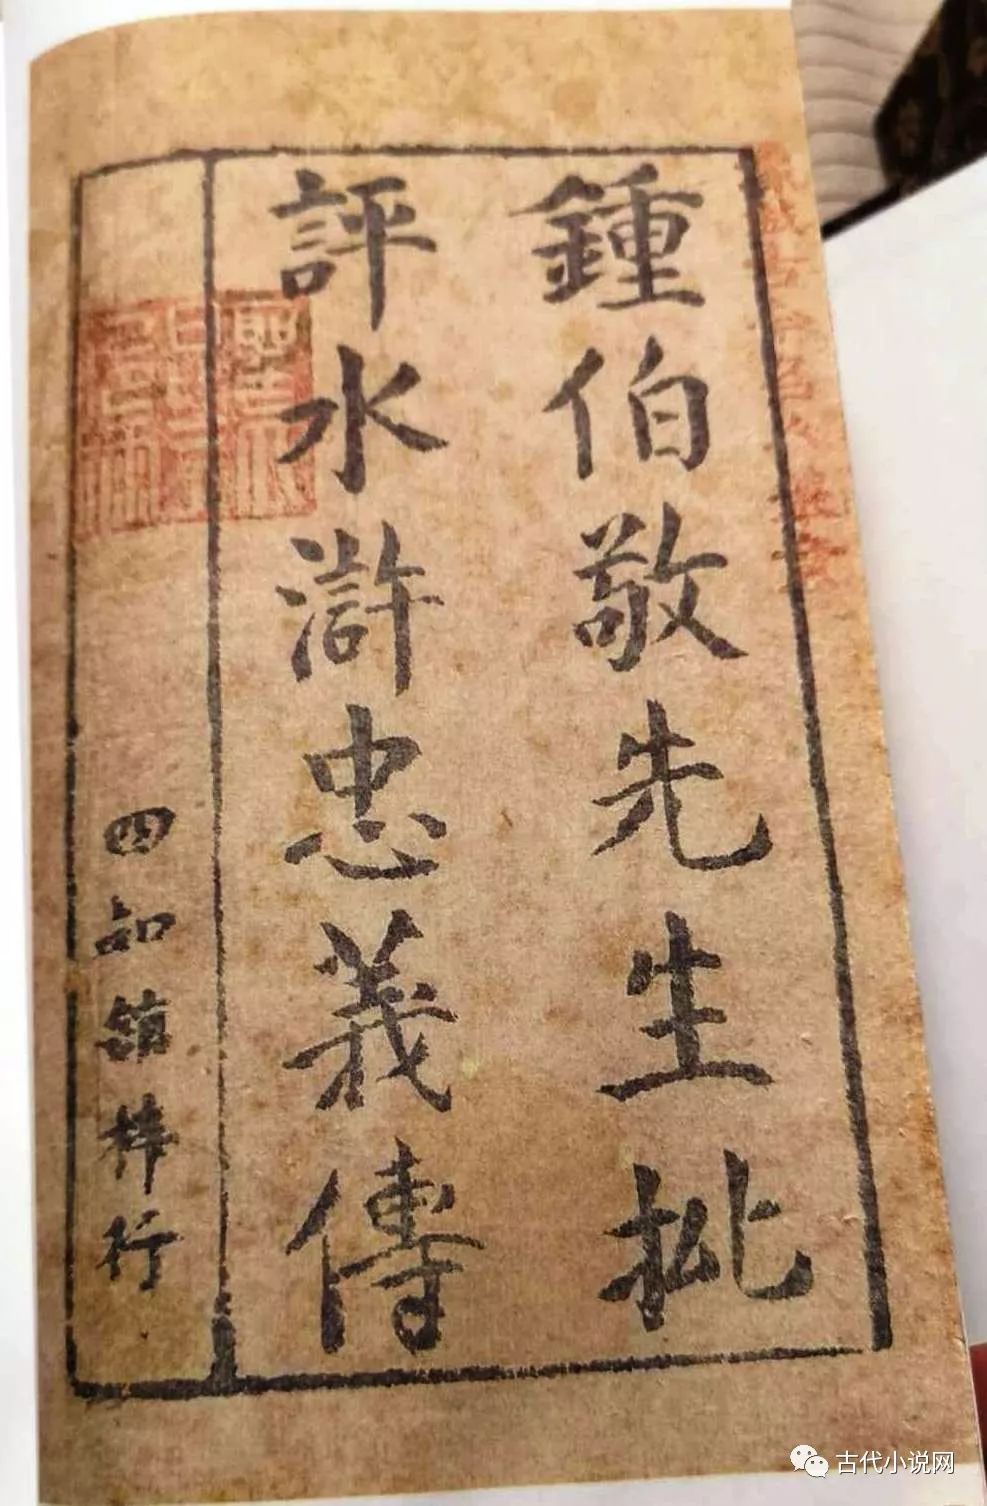 鍾伯敬先生批
評水滸忠義傳
四知館梓行
古代小说网